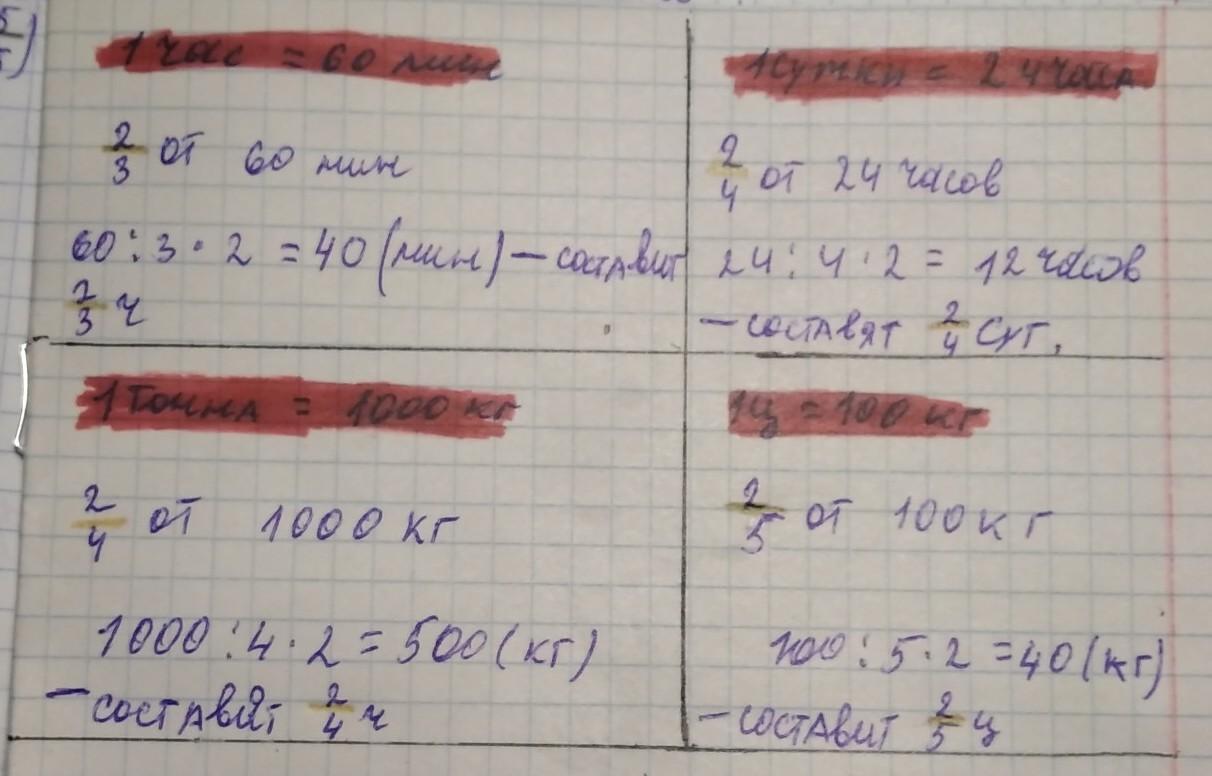 1 час = 60 мин
2/3 от 60 мин
60 : 3 · 2 = 40 (мин) – составит
2/3 ч
1 сутки = 24 часа
2/4 от 24 часов
24 : 4 · 2 = 12 часов
– составят 2/4 сут.
1 Тонна = 1000 кг
2/4 от 1000 кг
1000 : 4 · 2 = 500 (кг)
– составят 2/4 ч
1ц = 100 кг
2/5 от 100 кг
100 : 5 · 2 = 40 (кг)
– составит 2/5 ц